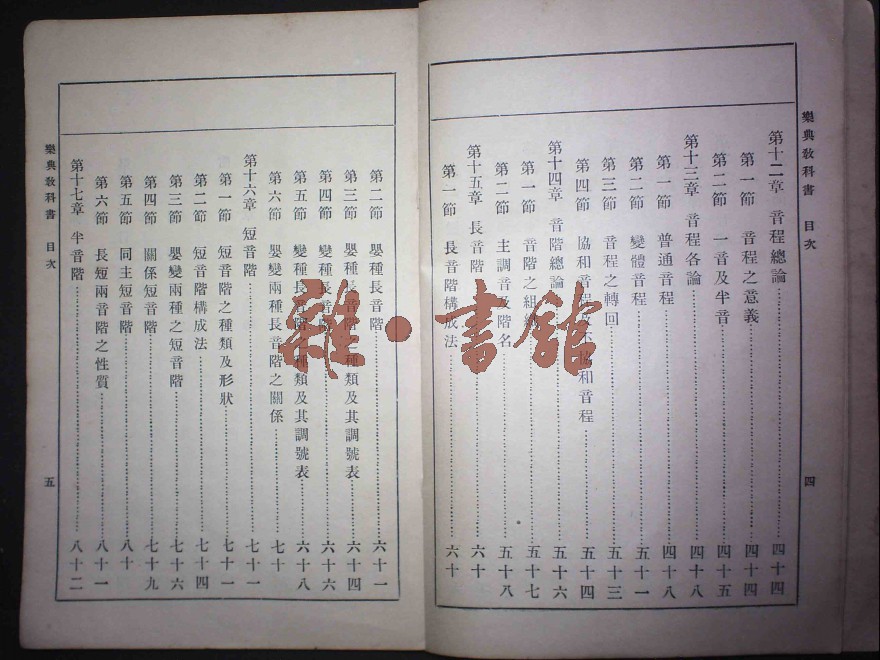 樂典教科書 目次
四
第十二章 音程總論 四十四
第一節 音程之意義 四十四
第二節 一音及半音 四十五
第十三章 音程各論 四十八
第一節 普通音程 四十八
第二節 變體音程 五十一
第三節 音程之轉回 五十三
第四節 協和音程及不協和音程 五十四
第十四章 音階總論 五十六
第一節 音階之組織 五十七
第二節 主調音及階名 五十八
第十五章 長音階 六十
第一節 長音階構成法 六十
第二節 嬰種長音階 六十一
第三節 嬰種長音階之種類及其調號表 六十四
第四節 變種長音階 六十六
第五節 變種長音階之種類及其調號表 六十八
第六節 嬰變兩種長音階之關係 七十
第十六章 短音階 七十一
第一節 短音階之種類及形狀 七十一
第二節 短音階構成法 七十四
第三節 嬰變兩種之短音階 七十六
第四節 關係短音階 七十九
第五節 同主短音階 八十
第六節 長短兩音階之性質 八十一
第十七章 半音階 八十二
樂典教科書 目次
五
雜·書館